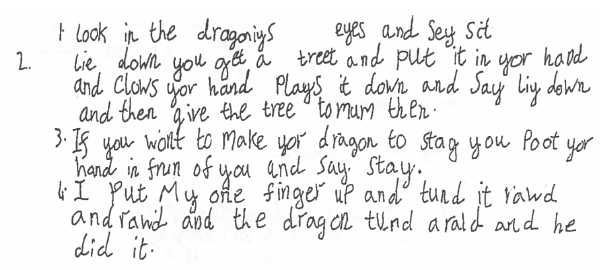 1 look in the dragoniys eyes and Sey Sit
2. Lie down you get a treet and put it in yor hand
and Clows yor hand Plays it down and Say Liy down
and then give the tree to mum then.
3. If you wont to Make yor dragon to stag you Poot yor
hand in frun of you and Say. Stay.
4. I Put My one finger up and tund it rawd
and rawd and the dragon tund arald and he
did it.